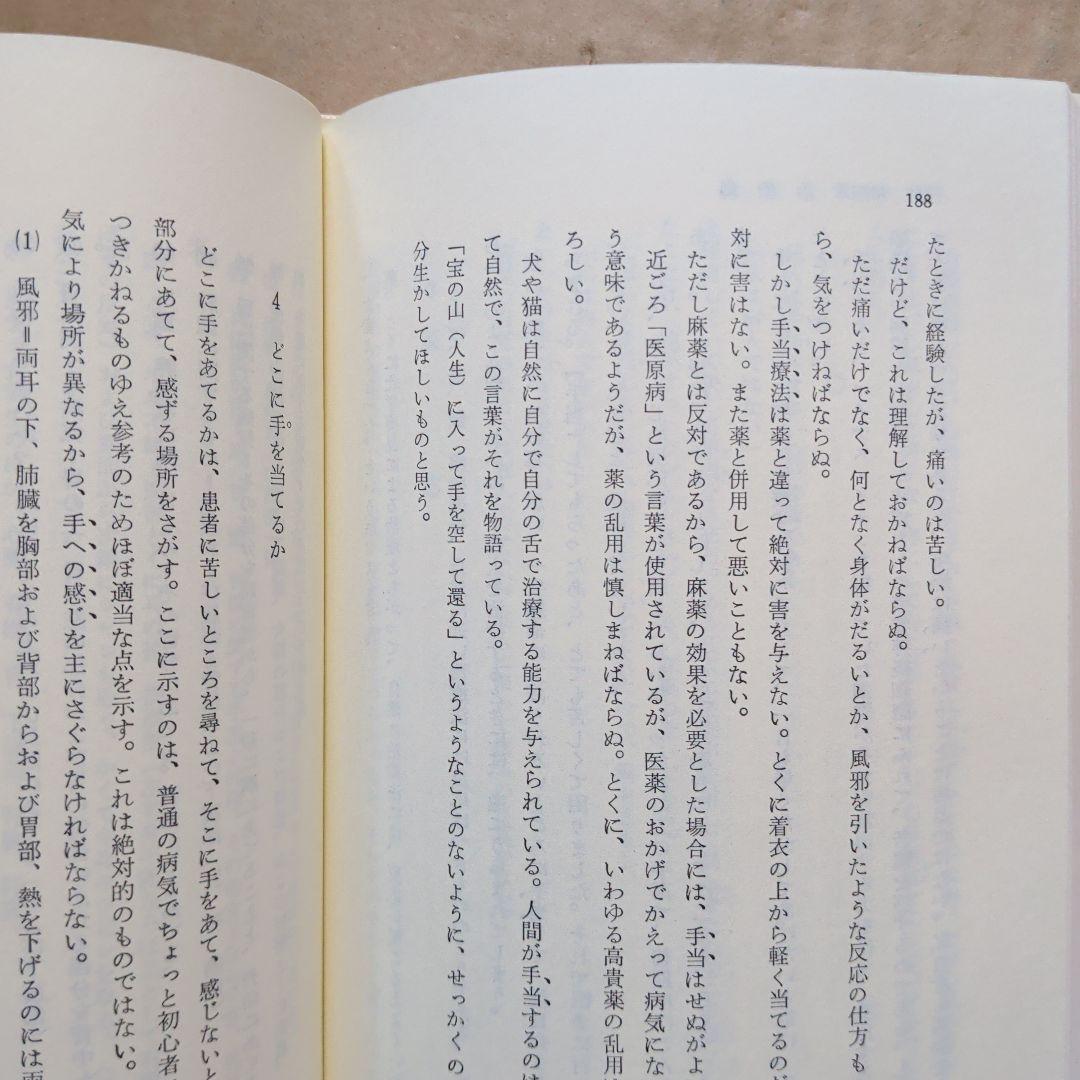 188
たときに経験したが、痛いのは苦しい。
だけど、これは理解しておかねばならぬ。
ただ痛いだけでなく、何となく身体がだるいとか、風邪を引いたような反応の仕方も
ら、気をつけねばならぬ。
しかし手当療法は薬と違って絶対に害を与えない。とくに着衣の上から軽く当てるのが
対に害はない。また薬と併用して悪いこともない。
ただし麻薬とは反対であるから、麻薬の効果を必要とした場合には、手当はせぬがよ
近ごろ「医原病」という言葉が使用されているが、医薬のおかげでかえって病気にな
う意味であるようだが、薬の乱用は慎しまねばならぬ。とくに、いわゆる高貴薬の乱用は
ろしい。
犬や猫は自然に自分で自分の舌で治療する能力を与えられている。人間が手当するのは
て自然で、この言葉がそれを物語っている。
「宝の山（人生）に入って手を空して還る」というようなことのないように、せっかくの
分生かしてほしいものと思う。
4 どこに手を当てるか
どこに手をあてるかは、患者に苦しいところを尋ねて、そこに手をあて、感じないと
部分にあてて、感ずる場所をさがす。ここに示すのは、普通の病気でちょっと初心者
つきかねるものゆえ参考のためほぼ適当な点を示す。これは絶対的のものではない。
気により場所が異なるから、手への感じを主にさぐらなければならない。
(1) 風邪＝両耳の下、肺臓を胸部および背部からおよび胃部、熱を下げるのには両